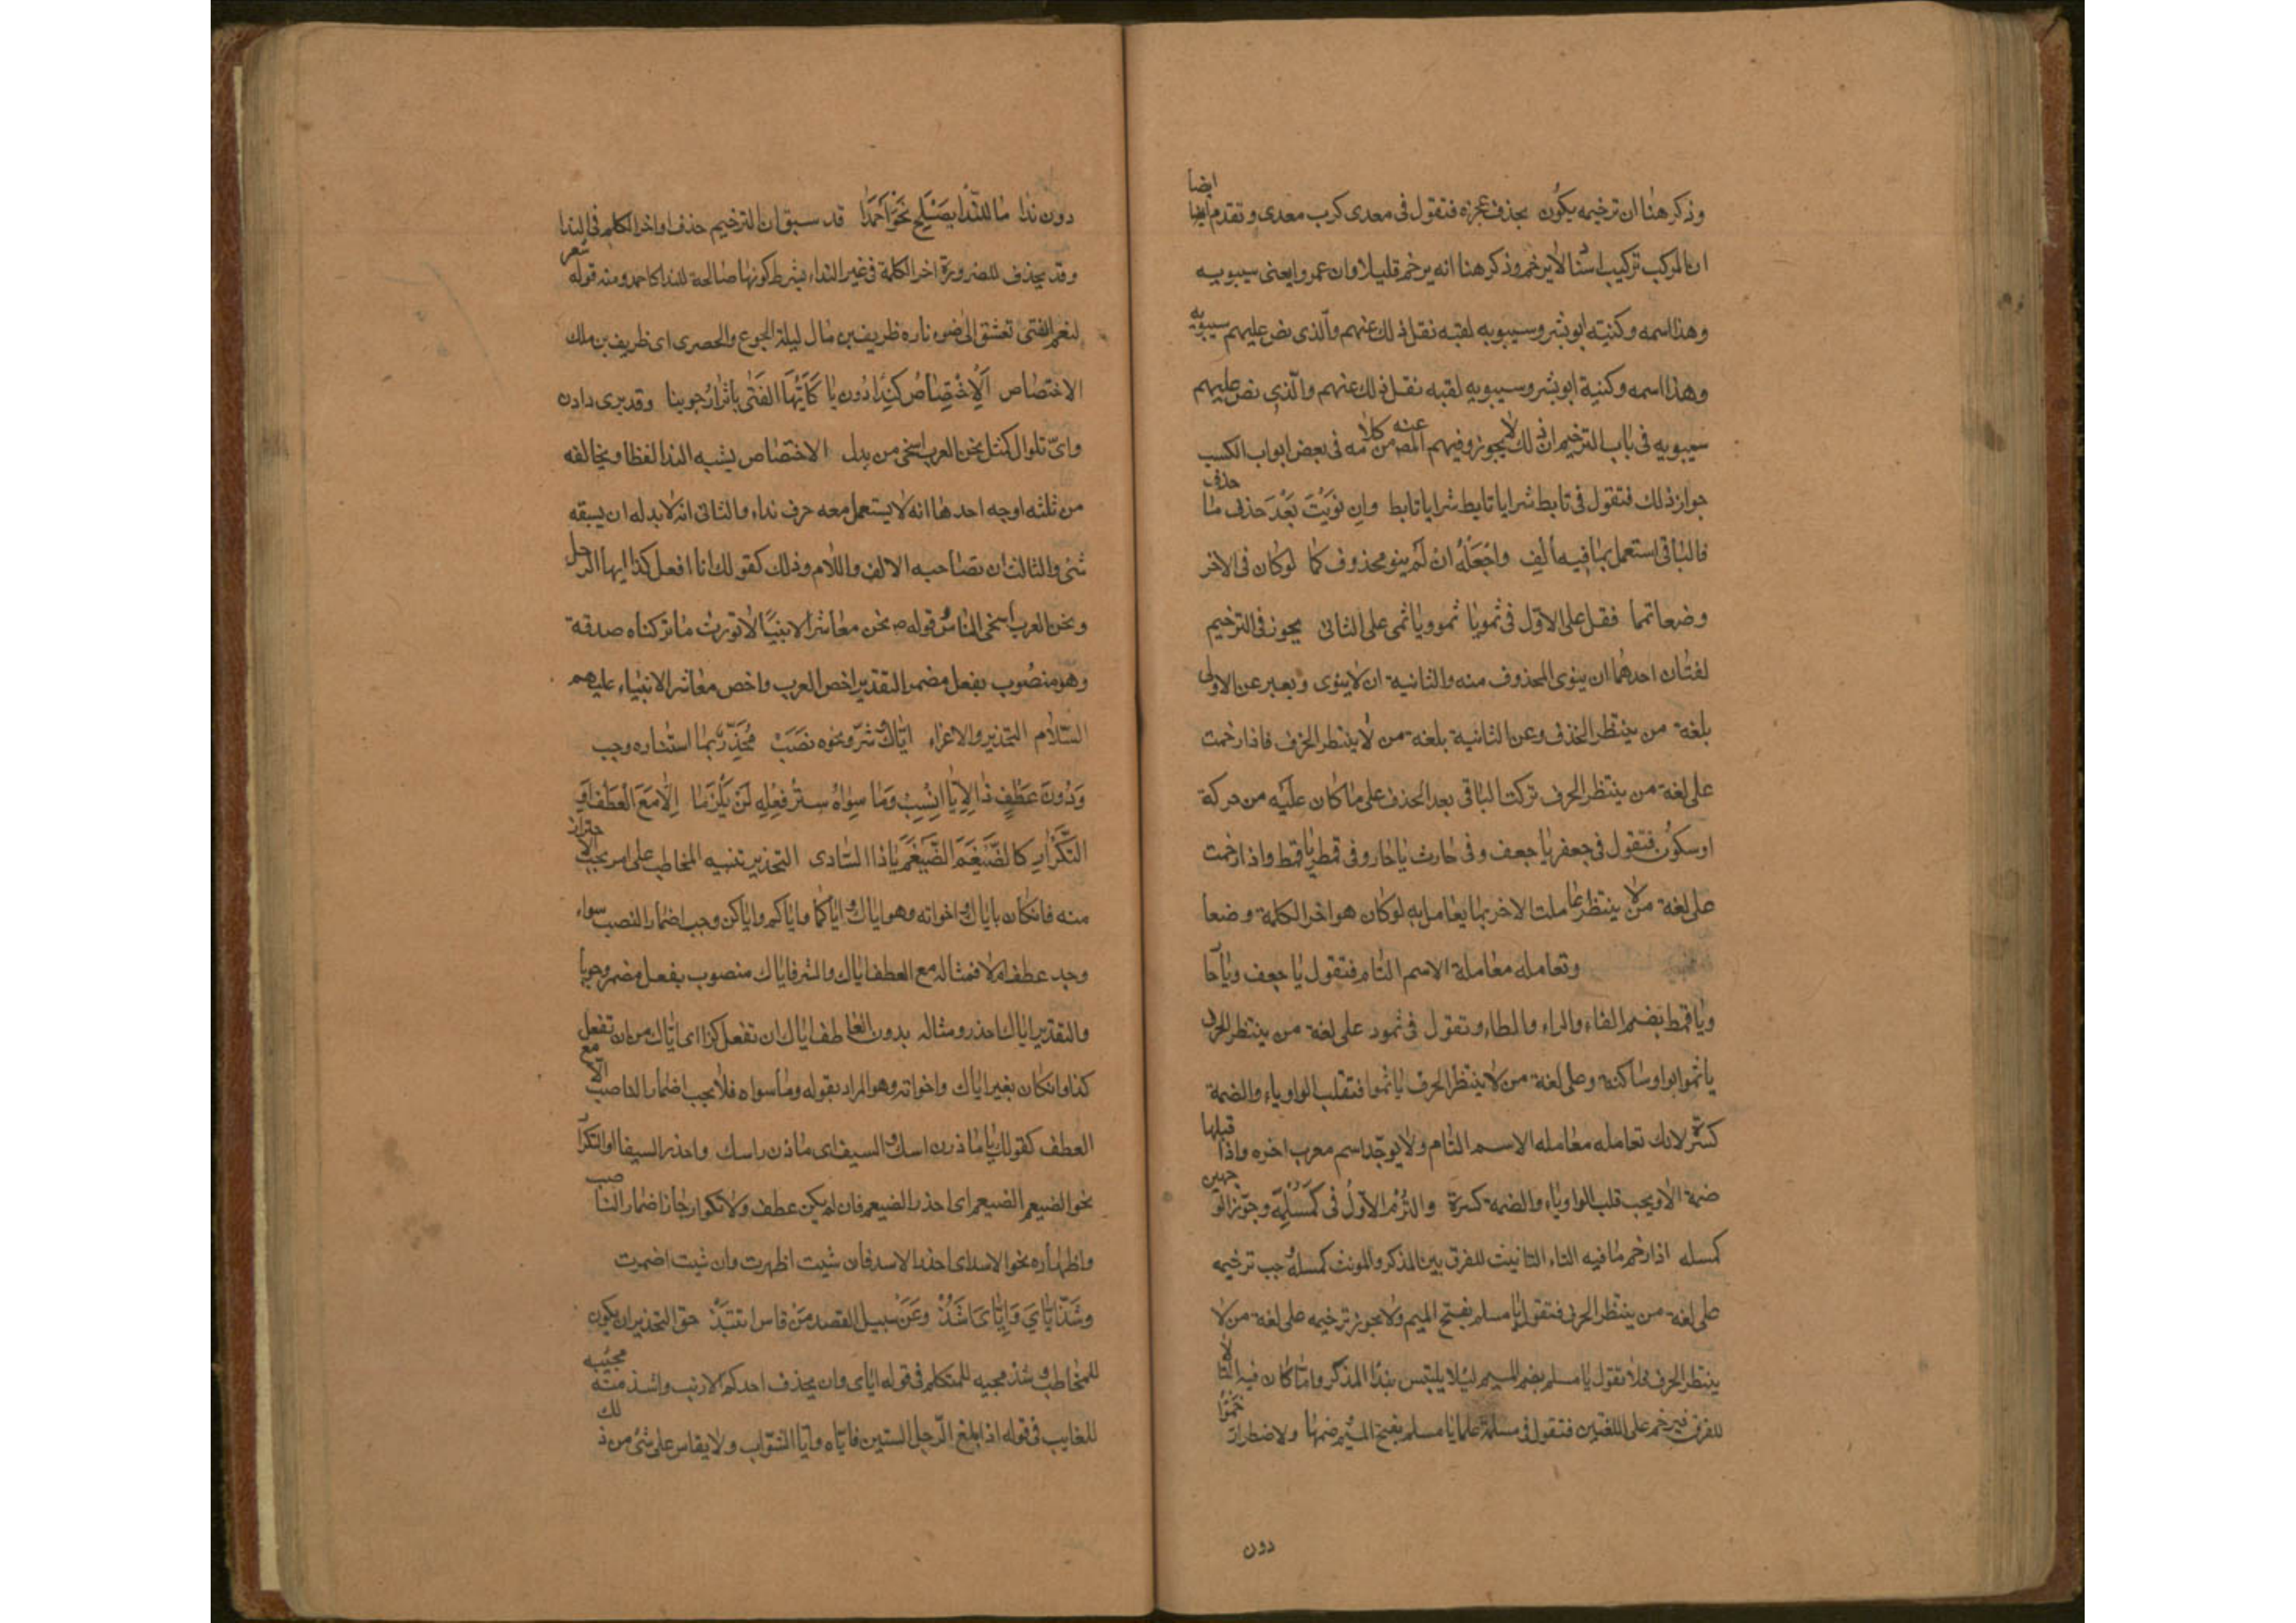 وذكر هنا ان ترخيمه يكون بحذف عجزه فتقول فى معدى كرب معدى وتقدم ايضا
ان المركب تركيب اسناد لا يرخم وذكر هنا انه يرخم قليلا وان عمروا يعنى سيبويه
وهذا اسمه وكنيته ابو بشر وسيبويه لقبه نقل ذلك عنهم والذى نص عليهم سيبويه
وهذا اسمه وكنية ابو بشر وسيبويه لقبه نقل ذلك عنهم والذى نص عليهم
سيبويه فى باب الترخيم ان ذلك لا يجوز وفيهم المص عنه من كلامه فى بعض ابواب الكسب
جواز ذلك فتقول فى تابط شرا يا تابط شرا يا تابط وان نَوَيْتَ بَعْدَ حذف مٰا
فالباقى استعمل بمٰا فيه ألِف واجْعَلْهُ انْ لَمْ ينو محذوف كمٰا لوكٰان فى الاخر
وضعا تمما فقل على الاوّل فى ثمو يٰا ثمو ويٰا ثمى على الثانى يجوز فى الترخيم
لغتٰان احدهمٰا ان ينوى المحذوف منه والثانية ان لا ينوى ويعبر عن الاولى
بلغة من ينتظر الحذف وعن الثانية بلغة من لا ينتظر الحرف فاذا رخمت
على لغة من ينتظر الحرف تركت الباقى بعد الحذف على ما كان عليه من حركة
او سكون فتقول فى جعفر يا جعف وفى حارث يا حار وفى قمطر يا قمط واذا رخمت
على لغة من لا ينتظر عاملت الاخر بما يعامل به لوكان هو اخر الكلمة وضعا
وتعامله معاملة الاسم التام فتقول يا جعف ويا حا
ويا قمط بضم الفاء والراء والطاء وتقول فى ثمود على لغة من ينتظر الحرف
يا ثموا بواو ساكنة وعلى لغة من لا ينتظر الحرف يا ثموا فتقلب الواو ياء والضمة
كسرة لانك تعامله معامله الاسم التام ولا يوجد اسم معرب اخره واذا قبلها
ضمة الا ويجب قلب الواو ياء والضمة كسرة والتزم الاوّلُ فى كَمُسْلِمَة وجوّز الو جهين
كمسله اذا رخم ما فيه التاء التانيث للفرق بين المذكر والمونث كمسلة وجب ترخيمه
على لغة من ينتظر الحرف فتقول يا مسلم بفتح الميم ولا يجوز ترخيمه على لغة من لا
ينتظر الحرف فلا تقول يا مسلم بضم الميم لئلا يلتبس بندا المذكر واما كان فيه التا لا
للفرق فيرخم على اللغتين فتقول فى مسلمة علما يا مسلم بفتح الميم وضمها ولاضطرار رخموا
دون
دون ندا مٰا للنّدٰا يَصْلَح نَحْوَ اَحمَدٰا قد سبق ان الترخيم حذف اواخر الكلم فى الندا
وقد يحذف للضرورة اخر الكلمة فى غير النداء بشرط كونها صالحة للندا كاحمد ومنه قوله شعر
لنعم الفتى تعشق الى ضوء ناره ظريف بن مال ليلة الجوع والحصرى اى ظريف بن ملك
الاختصاص اَلِاخْتِصٰاصُ كَنِدٰا دُونَ يٰا كَاَيُّهَا الفَتٰى بِاِثرِ ارْجونيا وقد يرى دا دون
واىّ تلو ال كمثل نحن العرب اسخى من بدل الاختصاص يشبه الندا لفظا ويخالفه
من ثلثه اوجه احدها انه لا يستعمل معه حرف نداء والثانى انه لا بد له ان يسبقه
شئ والثالث ان تصاحبه الالف واللام وذلك كقولك انا افعل كذا ايها الرجل
ونحن العرب اسخى الناس وقوله ص نحن معاشر الانبيا لا نورث ما تركناه صدقة
وهو منصوب بفعل مضمر التقدير اخص العرب واخص معاشر الانبياء عليهم
السّلام التحذير والاغراء ايّاك وشرّ ونحوه نصَبَ مُحَذِّرٌ بمٰا استتاره وجب
وَدُونَ عَطْفٍ ذٰا لِايّٰا انْسِبْ وَمٰا سِوٰاهُ سترُ فِعْلِهِ لَنْ يَلْزَمٰا اِلّا مَعَ العَطْفِ اَو
التَّكْرٰارِ كالضَّيْغَمَ الضَّيْغَمَ يٰا ذا السّٰادى التحذير تنبيه المخاطب على امر يجب الاحتراز
منه فان كان باياك واخواته وهو اياك واياكما واياكم واياكن وجب اضمار النصب سواء
وجد عطف ام لا فمثاله مع العطف اياك والشر فاياك منصوب بفعل مضمر وجوبا
والتقدير اياك احذر ومثاله بدون العاطف اياك ان تفعل كذا اى اياك من ان تفعل
كذا وان كان بغير اياك واخواته وهو المراد بقوله وما سواه فلا يجب اضمار الناصب الا مع
العطف كقولك يا ماز راسك والسيف اى ماز ق راسك واحذر السيف او التكرا
نحو الضيغم الضيغم اى احذر الضيغم فان لم يكن عطف ولا تكرار جاز اضمار الناصب
واظهاره نحو الاسد اى احذر الاسد فان شيت اظهرت وان شيت اضمرت
وشَذَّ ايّٰاىَ وَاِيّٰاهُ اَشَذُّ وعَنْ سبيل القصد مَنْ قاس انتَبَذْ حق التحذير ان يكون
للمخاطب وشذ مجيه للمتكلم فى قوله اياى وان يحذف احدكم الارنب واشذ منه مجيئه
للغايب فى قوله اذا بلغ الرّجل الستين فايّاه وايّا الشوّاب ولا يقاس على شئ من ذلك